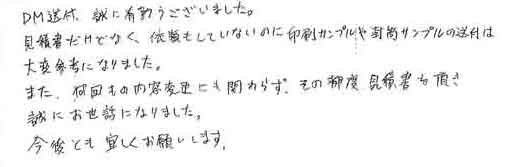 DM送付、誠に有難うございました。
見積書だけでなく、依頼もしていないのに印刷サンプルや封筒サンプルの送付は
大変参考になりました。
また、何回もの内容変更にも関わらず、その都度見積書を頂き
誠にお世話になりました。
今後とも宜しくお願いします。